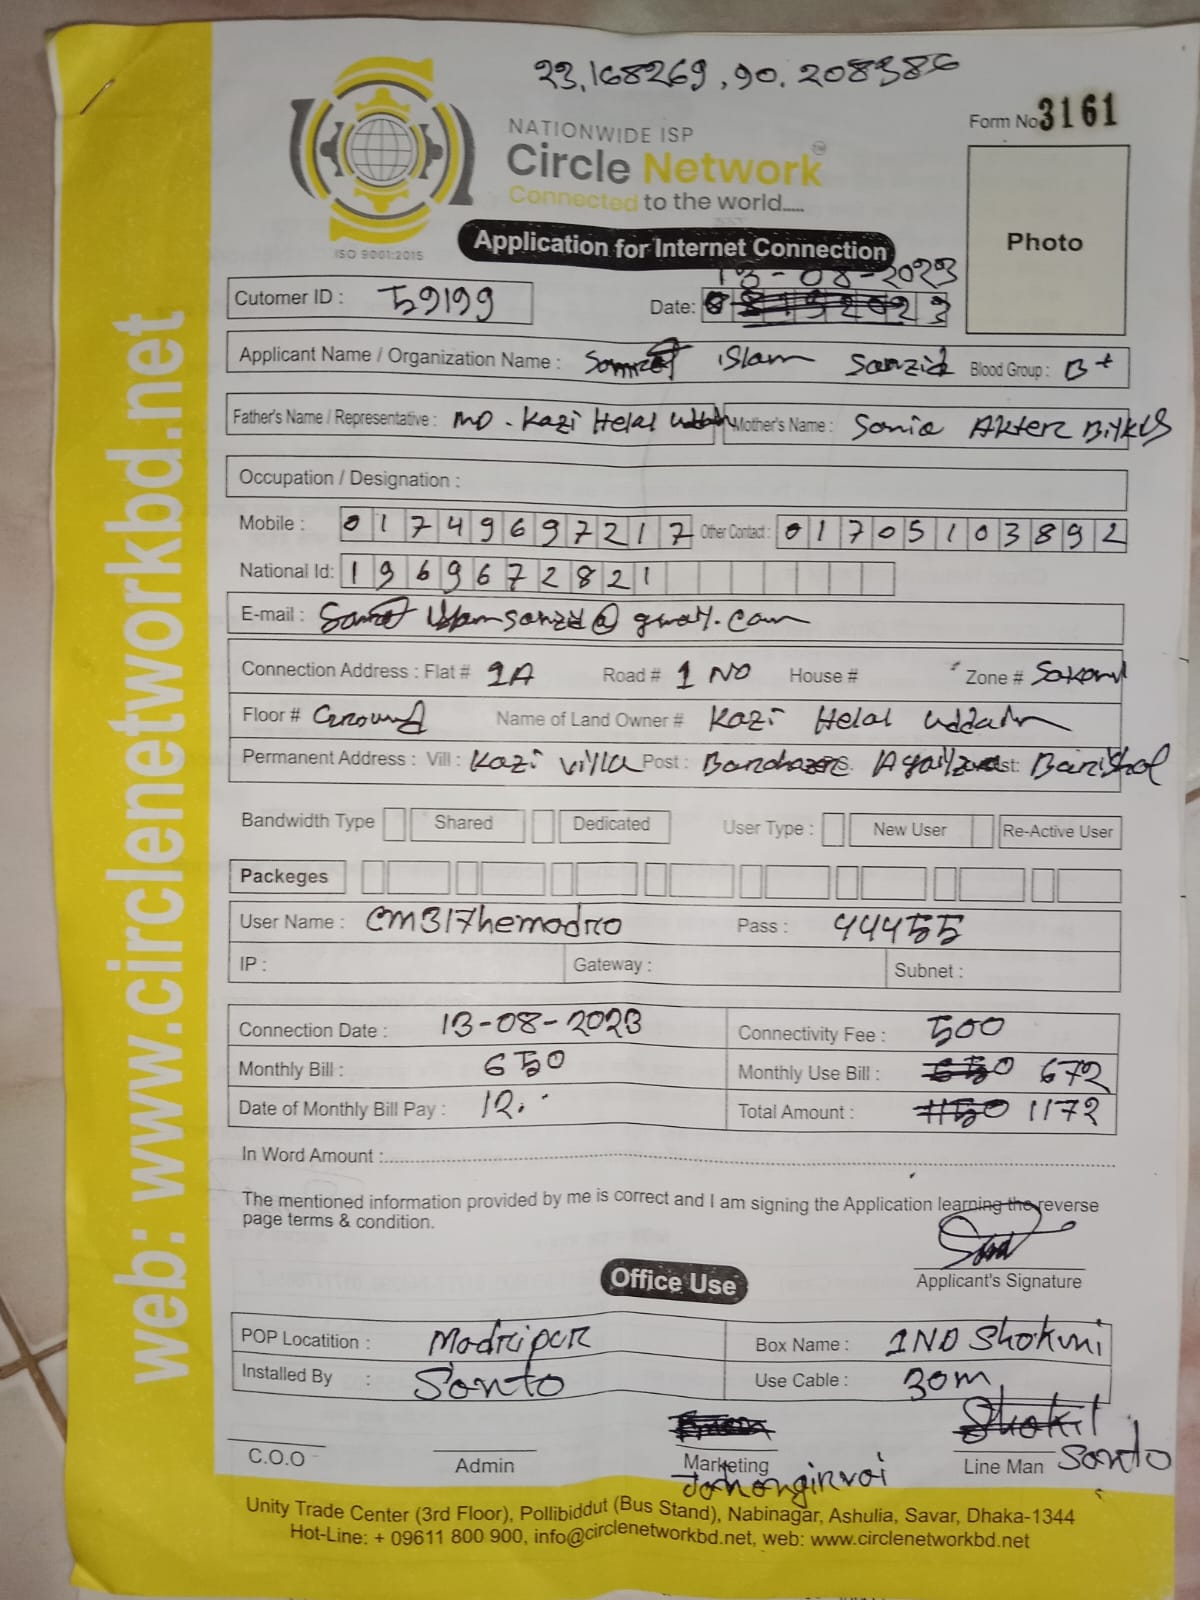 23.168269, 90.208386
NATIONWIDE ISP
Circle Network
TM
Connected to the world.....
ISO 9001:2015
Form No 3161
Photo
Application for Internet Connection
13-08-2023
Cutomer ID : 59199
Date:
Applicant Name / Organization Name : Islam Sanzid Blood Group : B+
Father's Name / Representative : MD. Kazi Helal Uddin Mother's Name : Sonia Akter Bilkis
Occupation / Designation :
Mobile : 01749697217 Other Contact : 01705103892
National Id: 1969672821
E-mail : islamsanzid@gmail.com
Connection Address : Flat # 1A Road # 1 NO House # Zone #
Floor # Ground Name of Land Owner # Kazi Helal Uddin
Permanent Address : Vill : Kazi villa Post : Dist: Barishal
Bandwidth Type Shared Dedicated User Type : New User Re-Active User
Packeges
User Name : CM317hemadro Pass : 44455
IP : Gateway : Subnet :
Connection Date : 13-08-2023 Connectivity Fee : 500
Monthly Bill : 650 Monthly Use Bill : 650 672
Date of Monthly Bill Pay : 12. Total Amount : 1150 1172
In Word Amount :
The mentioned information provided by me is correct and I am signing the Application learning the reverse
page terms & condition.
Applicant's Signature
Office Use
POP Locatition : Madripur Box Name : 1NO Shokuni
Installed By : Santo Use Cable : 30m
Shakil
C.O.O Admin Marketing Line Man Santo
Jahangir vai
Unity Trade Center (3rd Floor), Pollibiddut (Bus Stand), Nabinagar, Ashulia, Savar, Dhaka-1344
Hot-Line: + 09611 800 900, info@circlenetworkbd.net, web: www.circlenetworkbd.net
web: www.circlenetworkbd.net